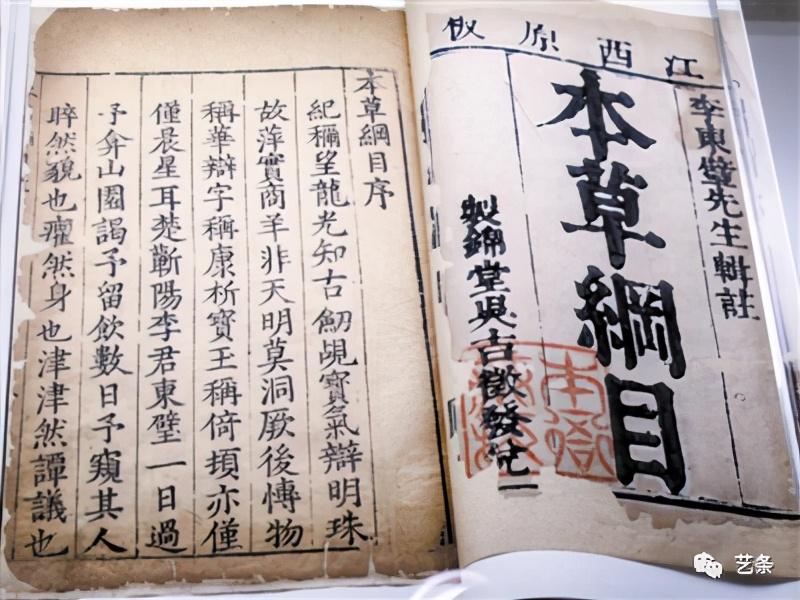 江西原板
李東璧先生輯註
本草綱目
製錦堂吳吉徵發兌
本草綱目序
紀稱望龍光知古劒覘寶氣辯明珠
故萍實商羊非天明莫洞厥後愽物
稱華辯字稱康析寶玉稱倚頓亦僅
僅晨星耳楚蘄陽李君東璧一日過
予弇山園謁予留飲數日予窺其人
睟然貌也癯然身也津津然譚議也
艺条